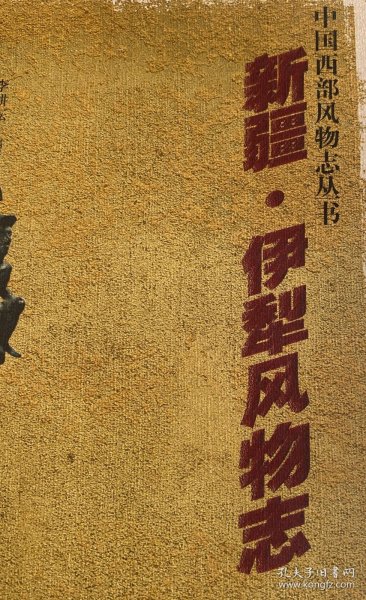 中国西部风物志丛书
新疆·伊犁风物志
李耕耘
孔夫子旧书网
www.kongfz.com